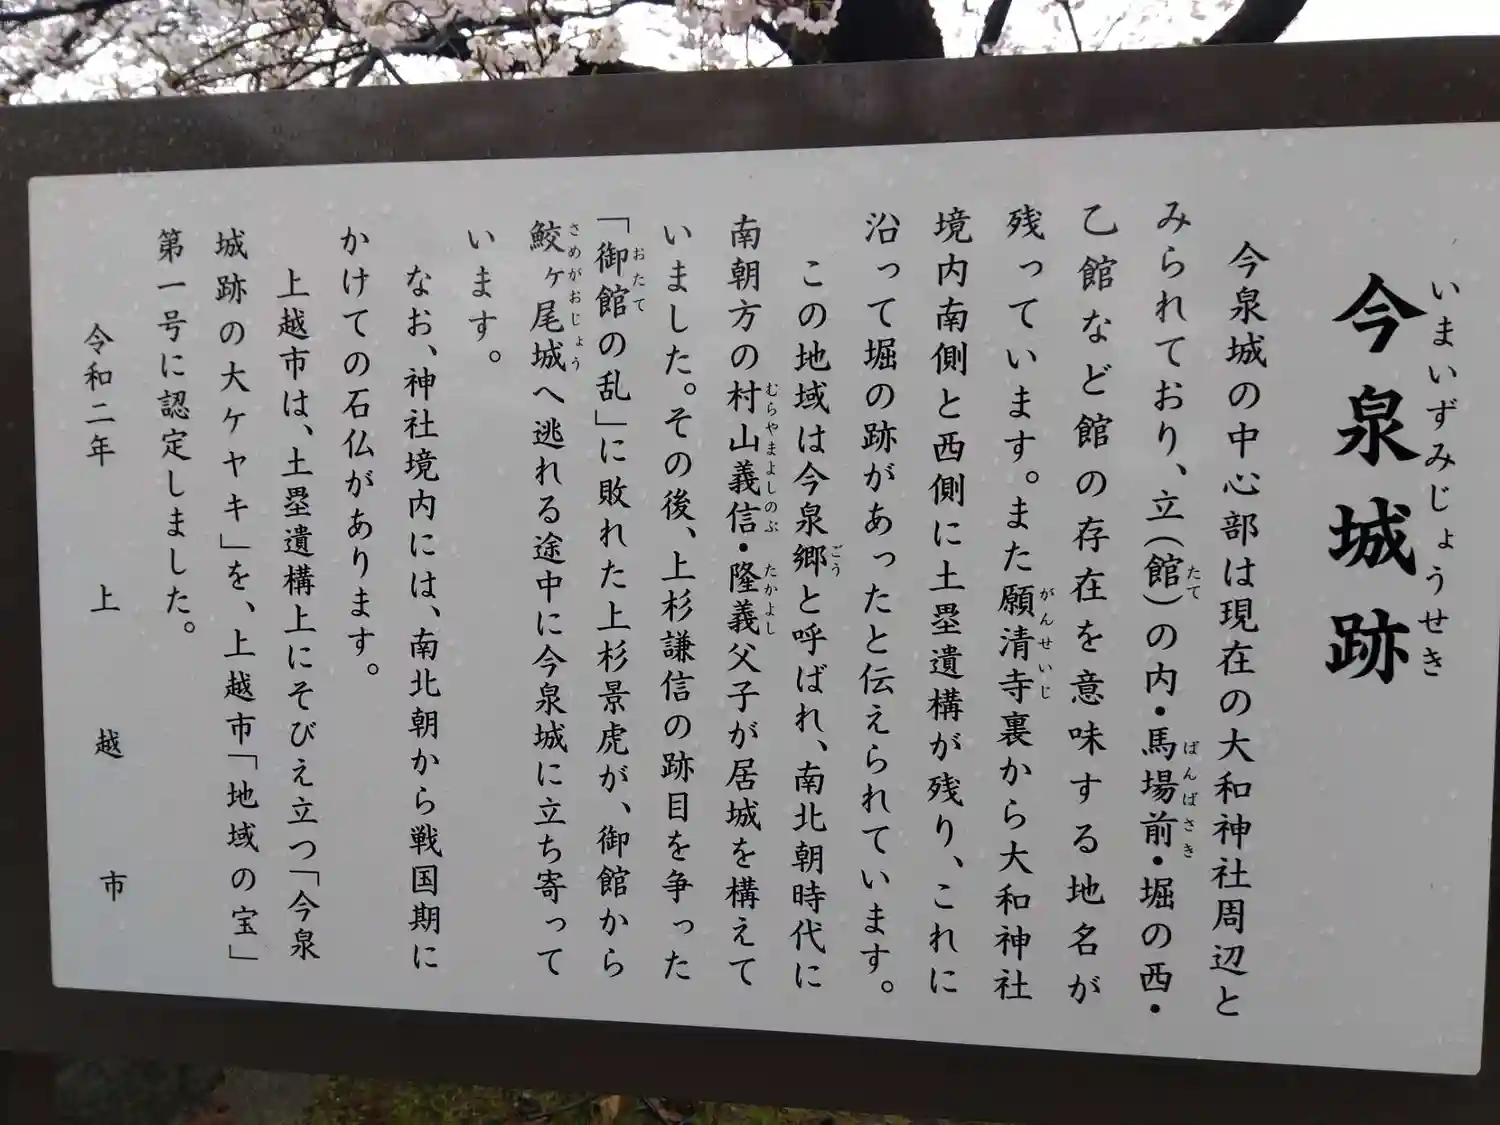 今泉城跡
いまいずみじょうせき
今泉城の中心部は現在の大和神社周辺と
みられており、立(館)の内・馬場前・堀の西・
たて
ばんばさき
乙館など館の存在を意味する地名が
残っています。また願清寺裏から大和神社
がんせいじ
境内南側と西側に土塁遺構が残り、これに
沿って堀の跡があったと伝えられています。
この地域は今泉郷と呼ばれ、南北朝時代に
ごう
南朝方の村山義信・隆義父子が居城を構えて
むらやまよしのぶ
たかよし
いました。その後、上杉謙信の跡目を争った
「御館の乱」に敗れた上杉景虎が、御館から
おたて
鮫ヶ尾城へ逃れる途中に今泉城に立ち寄って
さめがおじょう
います。
なお、神社境内には、南北朝から戦国期に
かけての石仏があります。
上越市は、土塁遺構上にそびえ立つ「今泉
城跡の大ケヤキ」を、上越市「地域の宝」
第一号に認定しました。
令和二年 上越市